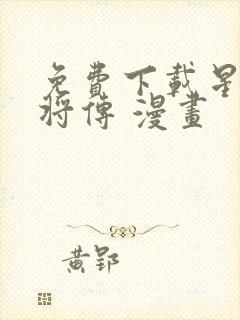 免費下載星
將傳 漫畫
黃郢